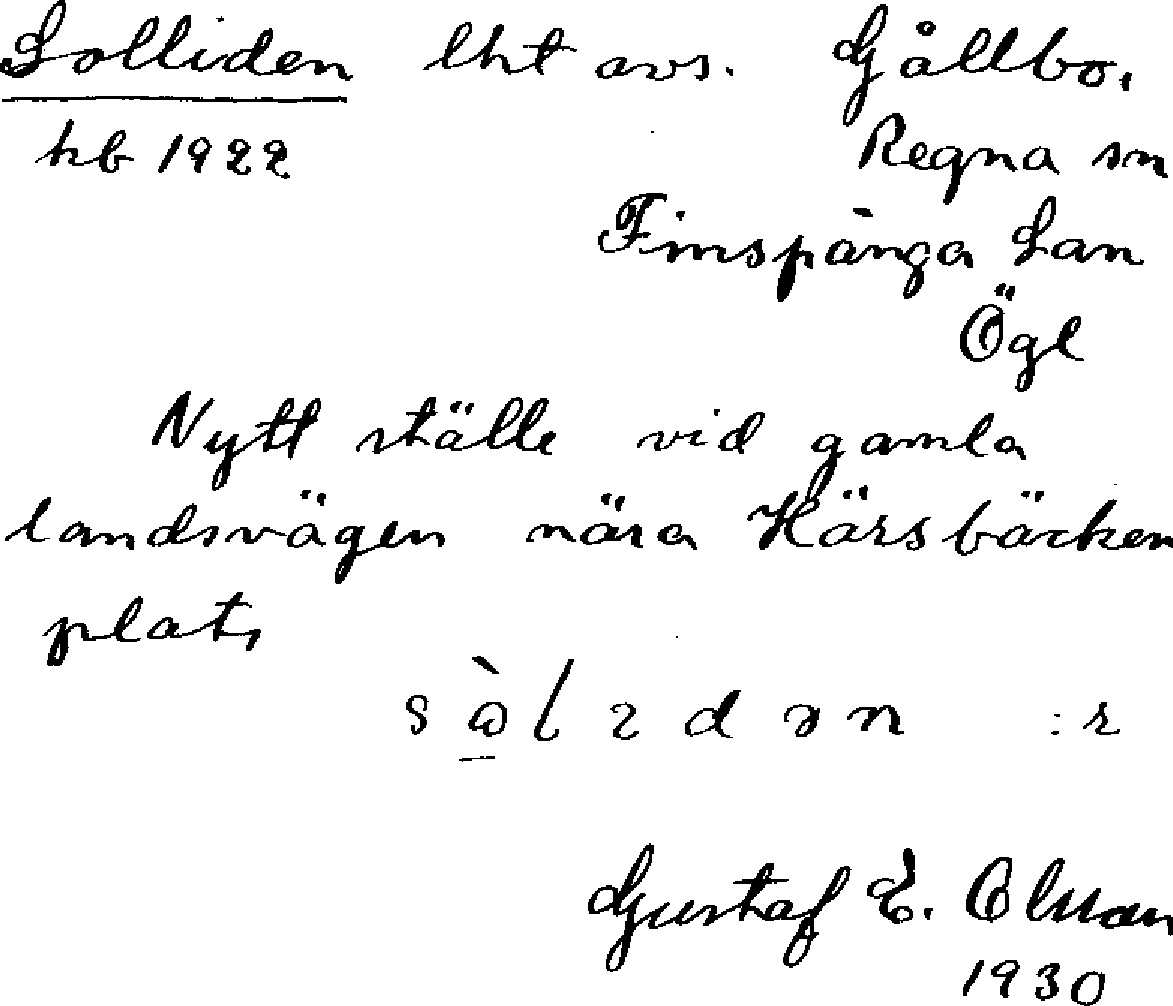 Solliden lht avs. Gållbo,
hb 1922
Regna sn
Finspånga Län
Ögl
Nytt ställe vid gamla
landsvägen nära Kärsbäcken
plats
:r
Gustaf E. Olsson
1930